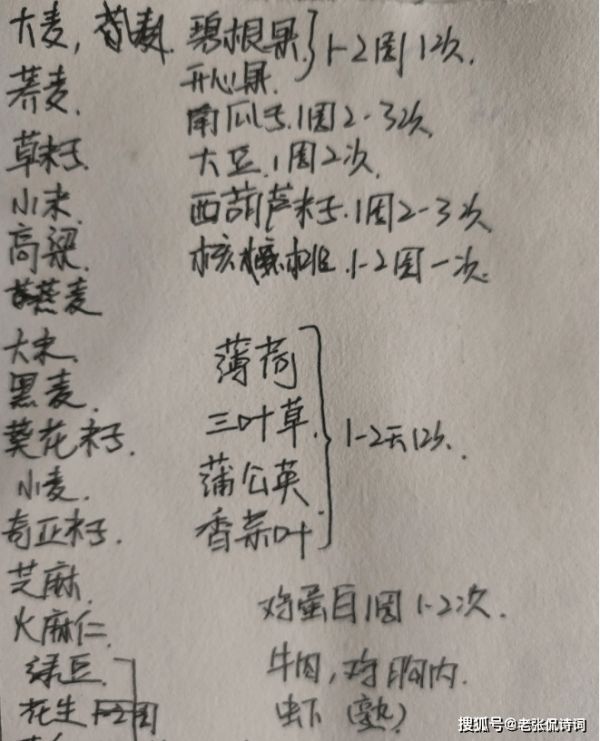 大麦，荞麦. 碧根果. 1-2周1次.
荞麦. 开心果.
南瓜子. 1周2-3次.
草籽. 大豆. 1周2次.
小米. 西葫芦籽. 1周2-3次
高梁. 核桃 1-2周一次.
燕麦
大米. 薄荷
黑麦. 三叶草. 1-2天1次.
葵花籽.
小麦. 蒲公英
奇亚籽. 香菜叶
芝麻.
火麻仁. 鸡蛋白1周1-2次.
绿豆. 牛肉，鸡胸肉.
花生 1-2周 虾（熟）
搜狐号@老张侃诗词